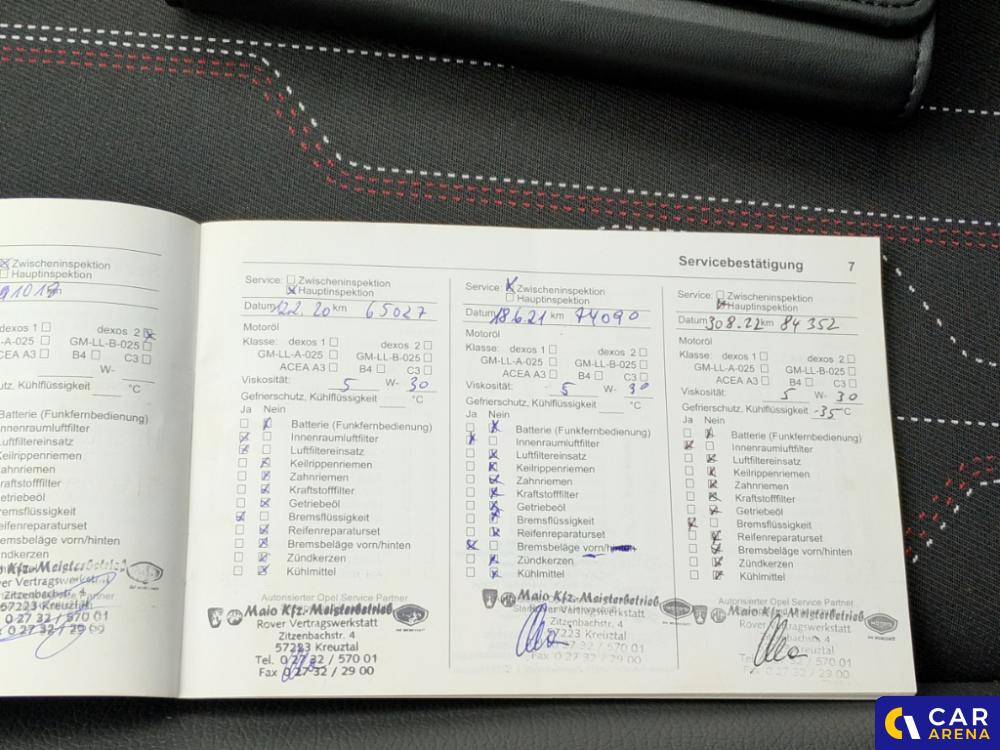 Zwischeninspektion
Hauptinspektion
dexos 1 dexos 2
-A-025 GM-LL-B-025
ACEA A3 B4 C3
W-
utz, Kühlflüssigkeit °C
Batterie (Funkfernbedienung)
Innenraumluftfilter
Luftfiltereinsatz
Keilrippenriemen
Zahnriemen
Kraftstofffilter
Getriebeöl
Bremsflüssigkeit
Reifenreparaturset
Bremsbeläge vorn/hinten
Zündkerzen
Kfz.-Meisterbetrieb
over Vertragswerkstatt
Zitzenbachstr. 4
57223 Kreuztal
0 27 32 / 570 01
0 27 32 / 29 00
Servicebestätigung 7
Service: Zwischeninspektion
Hauptinspektion
Datum 12.2.20 km 65027
Motoröl
Klasse: dexos 1 dexos 2
GM-LL-A-025 GM-LL-B-025
ACEA A3 B4 C3
Viskosität: 5 W- 30
Gefrierschutz, Kühlflüssigkeit °C
Ja Nein
Batterie (Funkfernbedienung)
Innenraumluftfilter
Luftfiltereinsatz
Keilrippenriemen
Zahnriemen
Kraftstofffilter
Getriebeöl
Bremsflüssigkeit
Reifenreparaturset
Bremsbeläge vorn/hinten
Zündkerzen
Kühlmittel
Autorisierter Opel Service Partner
Maio Kfz.-Meisterbetrieb
Rover Vertragswerkstatt
Zitzenbachstr. 4
57223 Kreuztal
Tel. 0 27 32 / 570 01
Fax 0 27 32 / 29 00
Service: Zwischeninspektion
Hauptinspektion
Datum 18.6.21 km 74090
Motoröl
Klasse: dexos 1 dexos 2
GM-LL-A-025 GM-LL-B-025
ACEA A3 B4 C3
Viskosität: 5 W- 30
Gefrierschutz, Kühlflüssigkeit °C
Ja Nein
Batterie (Funkfernbedienung)
Innenraumluftfilter
Luftfiltereinsatz
Keilrippenriemen
Zahnriemen
Kraftstofffilter
Getriebeöl
Bremsflüssigkeit
Reifenreparaturset
Bremsbeläge vorn/hinten
Zündkerzen
Kühlmittel
Maio Kfz.-Meisterbetrieb
Vertragswerkstatt
Zitzenbachstr. 4
57223 Kreuztal
0 27 32 / 570 01
Fax 0 27 32 / 29 00
Service: Zwischeninspektion
Hauptinspektion
Datum 30.8.22 km 84352
Motoröl
Klasse: dexos 1 dexos 2
GM-LL-A-025 GM-LL-B-025
ACEA A3 B4 C3
Viskosität: 5 W- 30
Gefrierschutz, Kühlflüssigkeit -35 °C
Ja Nein
Batterie (Funkfernbedienung)
Innenraumluftfilter
Luftfiltereinsatz
Keilrippenriemen
Zahnriemen
Kraftstofffilter
Getriebeöl
Bremsflüssigkeit
Reifenreparaturset
Bremsbeläge vorn/hinten
Zündkerzen
Kühlmittel
Autorisierter Opel Service Partner
Maio Kfz.-Meisterbetrieb
Vertragswerkstatt
Zitzenbachstr. 4
57223 Kreuztal
0 27 32 / 570 01
0 27 32 / 29 00
CAR
ARENA